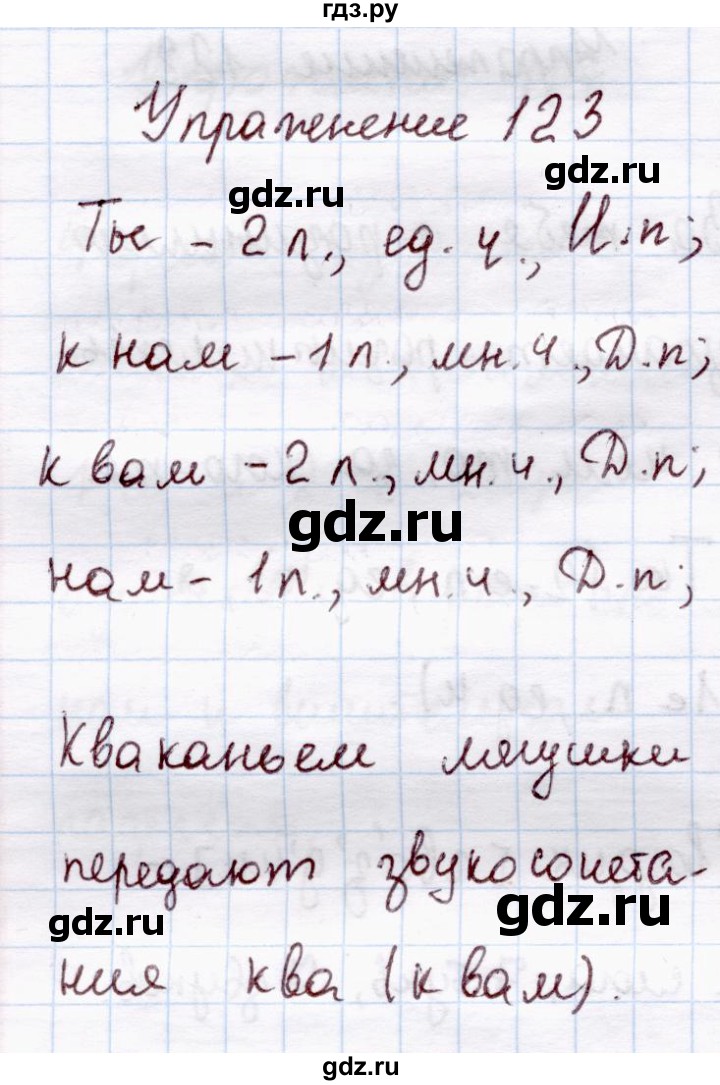 гдз.ру
Упражнение 123
gdz.ru
gdz.ru
Ты - 2 л., ед. ч., И.п;
к нам - 1 л., мн.ч., Д.п;
к вам - 2 л., мн.ч., Д.п;
gdz.ru
нам - 1 л., мн.ч, Д.п;
Кваканьем лягушки
передают звукосочета-
gdz.ru
gdz.ru
ния ква (к вам).
gdz.ru